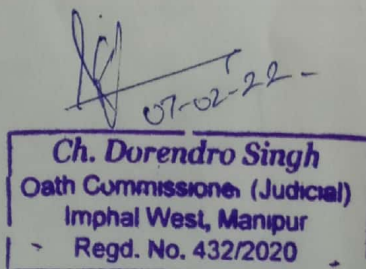 07-02-22-
Ch. Dorendro Singh
Oath Commissioner (Judicial)
Imphal West, Manipur
Regd. No. 432/2020